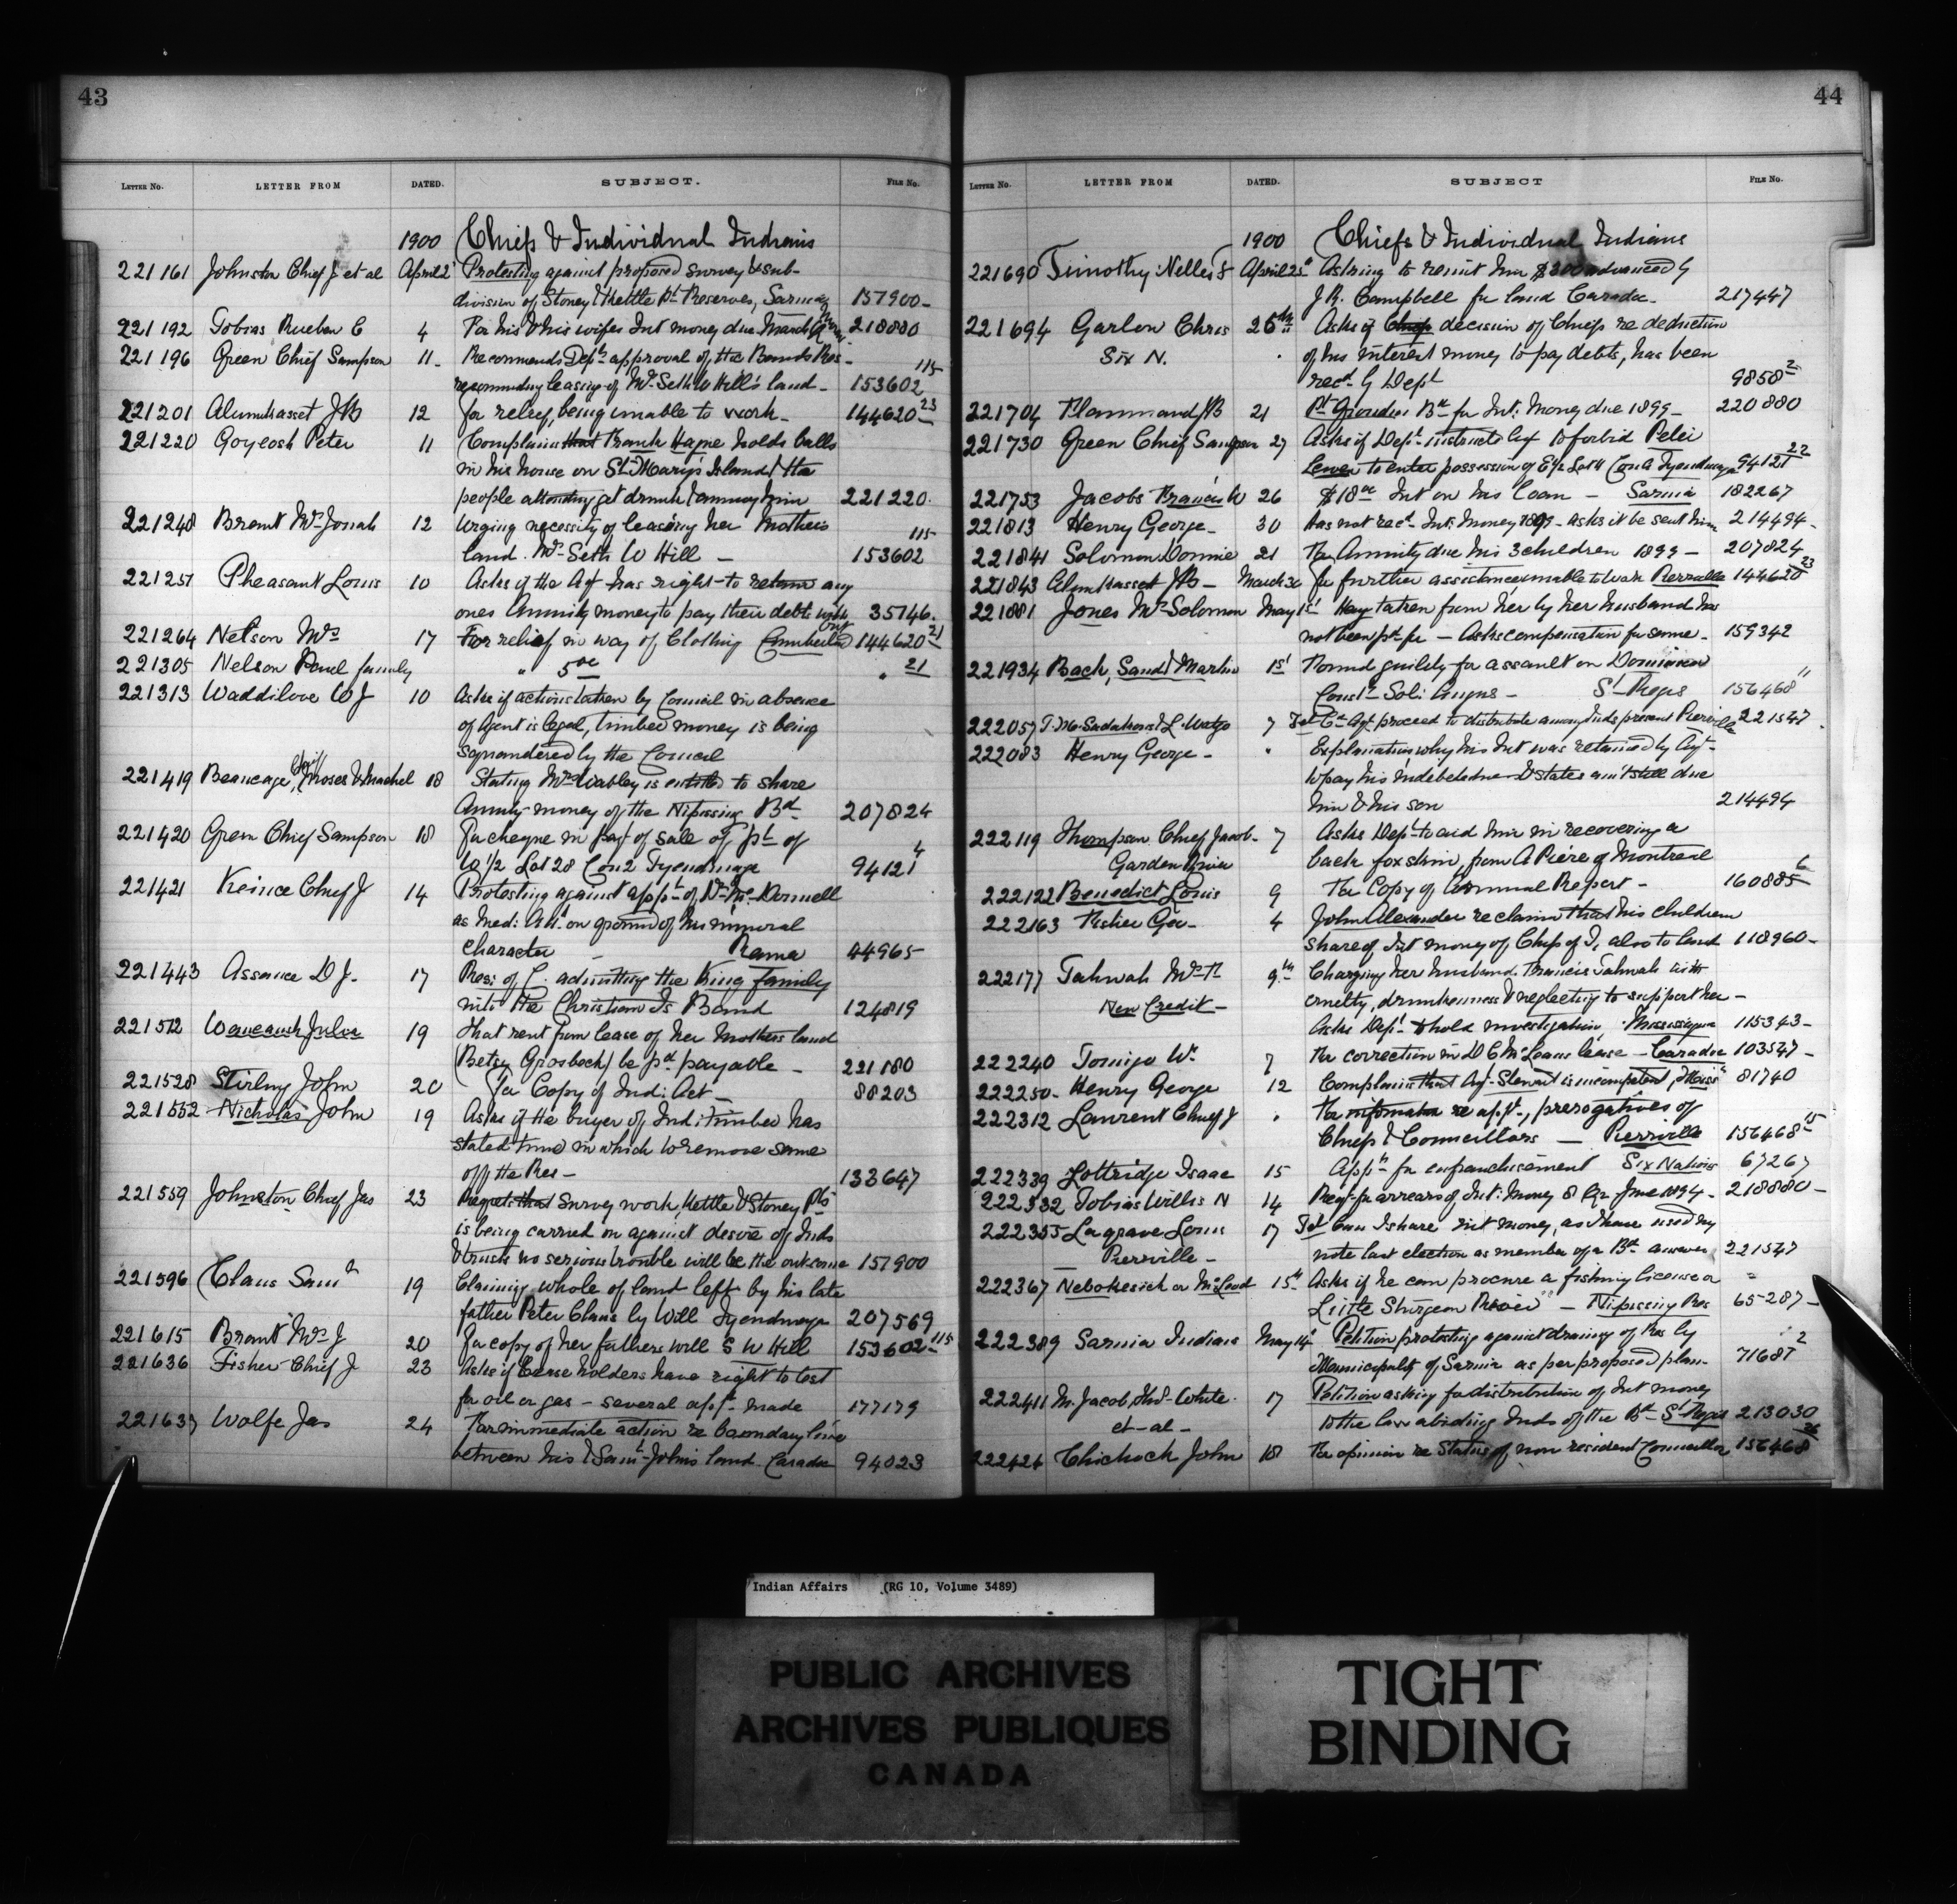 43
LETTER NO. LETTER FROM DATED. SUBJECT. FILE NO.
1900 Chiefs & Individual Indians
221161 Johnston Chief J et al April 2 Protesting against proposed survey & sub-
division of Stoney & Kettle Pt Reserves, Sarnia 157900-
221192 Tobias Rueben C 4 For his & his wifes Int money due March 218880
221196 Green Chief Sampson 11- Recommends Dept approval of the Bands Res-
recommending leasing of Mrs Seth W Hill's land- 153602 115
221201 Alumkasset JB 12 for relief, being unable to work- 144620 23
221220 Goyeosh Peter 11 Complains that Frank Hague holds balls
in his house on St. Mary's Island & the
people attending get drunk & annoy him 221220.
221248 Brant Mrs Jonah 12 Urging necessity of leasing her Mothers
land. Mrs Seth W Hill - 153602 115
221251 Pheasant Louis 10 Asks if the Agt has right to retain any
ones Annuity money to pay their debts 35746.
221264 Nelson Mrs 17 For relief in way of Clothing 144620 21
221305 Nelson family " 5 00 " 21
221313 Waddilove W J 10 Asks if actions taken by Council in absence
of Agent is legal, timber money is being
squandered by the Council
221419 Beaucage, Chief Moses & Machel 18 Stating Mrs Wabley is entitled to share
Annuity money of the Nipissing Bd 207824
221420 Green Chief Sampson 18 For cheque in pay of sale of pt of
W 1/2 Lot 28 Con 2 Tyendinaga 94121 4
221421 Keince Chief J 14 Protesting against appt of Dr Mc Donnell
as Med: Att. on ground of his immoral
character - Rama 44965
221443 Assance D J. 17 Res: of C. admitting the King family
into the Christian Is Band 124819
221512 Waucaush Julia 19 That rent from lease of her Mothers land
(Betsy Grosbeck) be pd payable - 221180
221528 Stirling John 20 For Copy of Ind: Act - 88203
221552 Nicholas John 19 Asks if the buyer of Ind: timber has
stated time in which to remove same
off the Res- 133647
221559 Johnston Chief Jas 23 Regrets that Survey work, Kettle & Stoney Pts
is being carried on against desire of Inds
& trusts no serious trouble will be the outcome 157900
221596 Claus Saml 19 Claiming whole of land left by his late
father Peter Claus by Will Tyendinaga 207569
221615 Brant Mrs J 20 For copy of her fathers will S W Hill 153602 115
221636 Fisher Chief J 23 Asks if Lease holders have right to test
for oil or gas - several appt made 177179
221637 Wolfe Jas 24 For immediate action re boundary line
between his & Saml Johns land Caradoc 94023
44
LETTER NO. LETTER FROM DATED. SUBJECT FILE NO.
1900 Chiefs & Individual Indians
221690 Timothy Nelles F April 25th Asking to remit him $300 advanced by
J.R. Campbell for land Caradoc- 217447
221694 Garlow Chris 26th Asks if Chiefs decision of Chiefs re deduction
Six N. of his interest money to pay debts, has been
recd by Dept 9858 2
221704 Flammand JB 21 Pt Grondin Bd for Int: Money due 1899- 220880
221730 Green Chief Sampson 27 Asks if Dept instructs Agt to forbid Peter
to enter possession of E 1/2 Lot Con A Tyendinaga 94121 22
221753 Jacobs Francis W 26 $18 00 Int on his loan - Sarnia 182267
221813 Henry George- 30 Has not recd Int: Money 1899- Asks it be sent him 214494-
221841 Solomon Donnie 21 For Annuity due his 3 children 1899- 207824
221843 Alumkasset JB- March 30 for further assistance unable to work Pierreville 144620 23
221881 Jones Mrs Solomon May 1st Hay taken from her by her husband has
not been pd for - Asks compensation for same- 159342
221934 Back, Sand & Martin 1st Found guilty for assault on Dominion
Const Sol: Angus - St Regis 156468 11
222057 L. Watso 7 Agt proceed to distribute among Inds present Pierreville 221547.
222083 Henry George- " Explanation why his Int was retained by Agt-
to pay his indebtedness & states amt still due
him & his son 214494
222119 Thompson Chief Jacob- 7 Asks Dept to aid him in recovering a
Garden River back fox skin, from A Piere of Montreal
222122 Benedict Louis 9 For Copy of Annual Report- 160885 6
222163 Fisher Geo- 4 John Alexander reclaims that his children
share of Int money of Chips of T, also to land 118960-
222177 Tahwah Mrs F. 9th Charging her husband Francis Tahwah with
New Credit- cruelty, drunkenness & neglecting to support her-
Asks Dept to hold investigation, Mississagua 115343-
222240 Tomigo W. 7 For correction in D C McLeans lease - Caradoc 103547-
222250- Henry George 12 Complains that Agt Stewart is incompetent, 81740
222312 Laurent Chief J " For information re appt, prerogatives of
Chiefs & Councillors - Pierreville 156468 15
222339 Lottridge Isaac 15 Appn for enfranchisement Six Nations 67267
222332 Tobias Willis N 14 Reqt for arrears of Int: Money & June 1894- 218880-
222355 Lagrave Louis 17 can I share int money, as I have used my
Pierreville- note last election as member of a Bd answer 221547
222367 Nebokesick or McLeod 15th Asks if he can procure a fishing license on
Little Sturgeon River - Nipissing Res 65287-
222389 Sarnia Indians May 14 Petition protesting against draining of Res by
Municipality of Sarnia as per proposed plan- 71681 2
222411 M. Jacob, Thos White. 17 Petition asking for distribution of Int money
et-al- to the law abiding Inds of the Bd St Regis 213030
222424 Chichock John 18 For opinion re Status of non resident Councillor 156468 26
Indian Affairs (RG 10, Volume 3489)
PUBLIC ARCHIVES
ARCHIVES PUBLIQUES
CANADA
TIGHT
BINDING